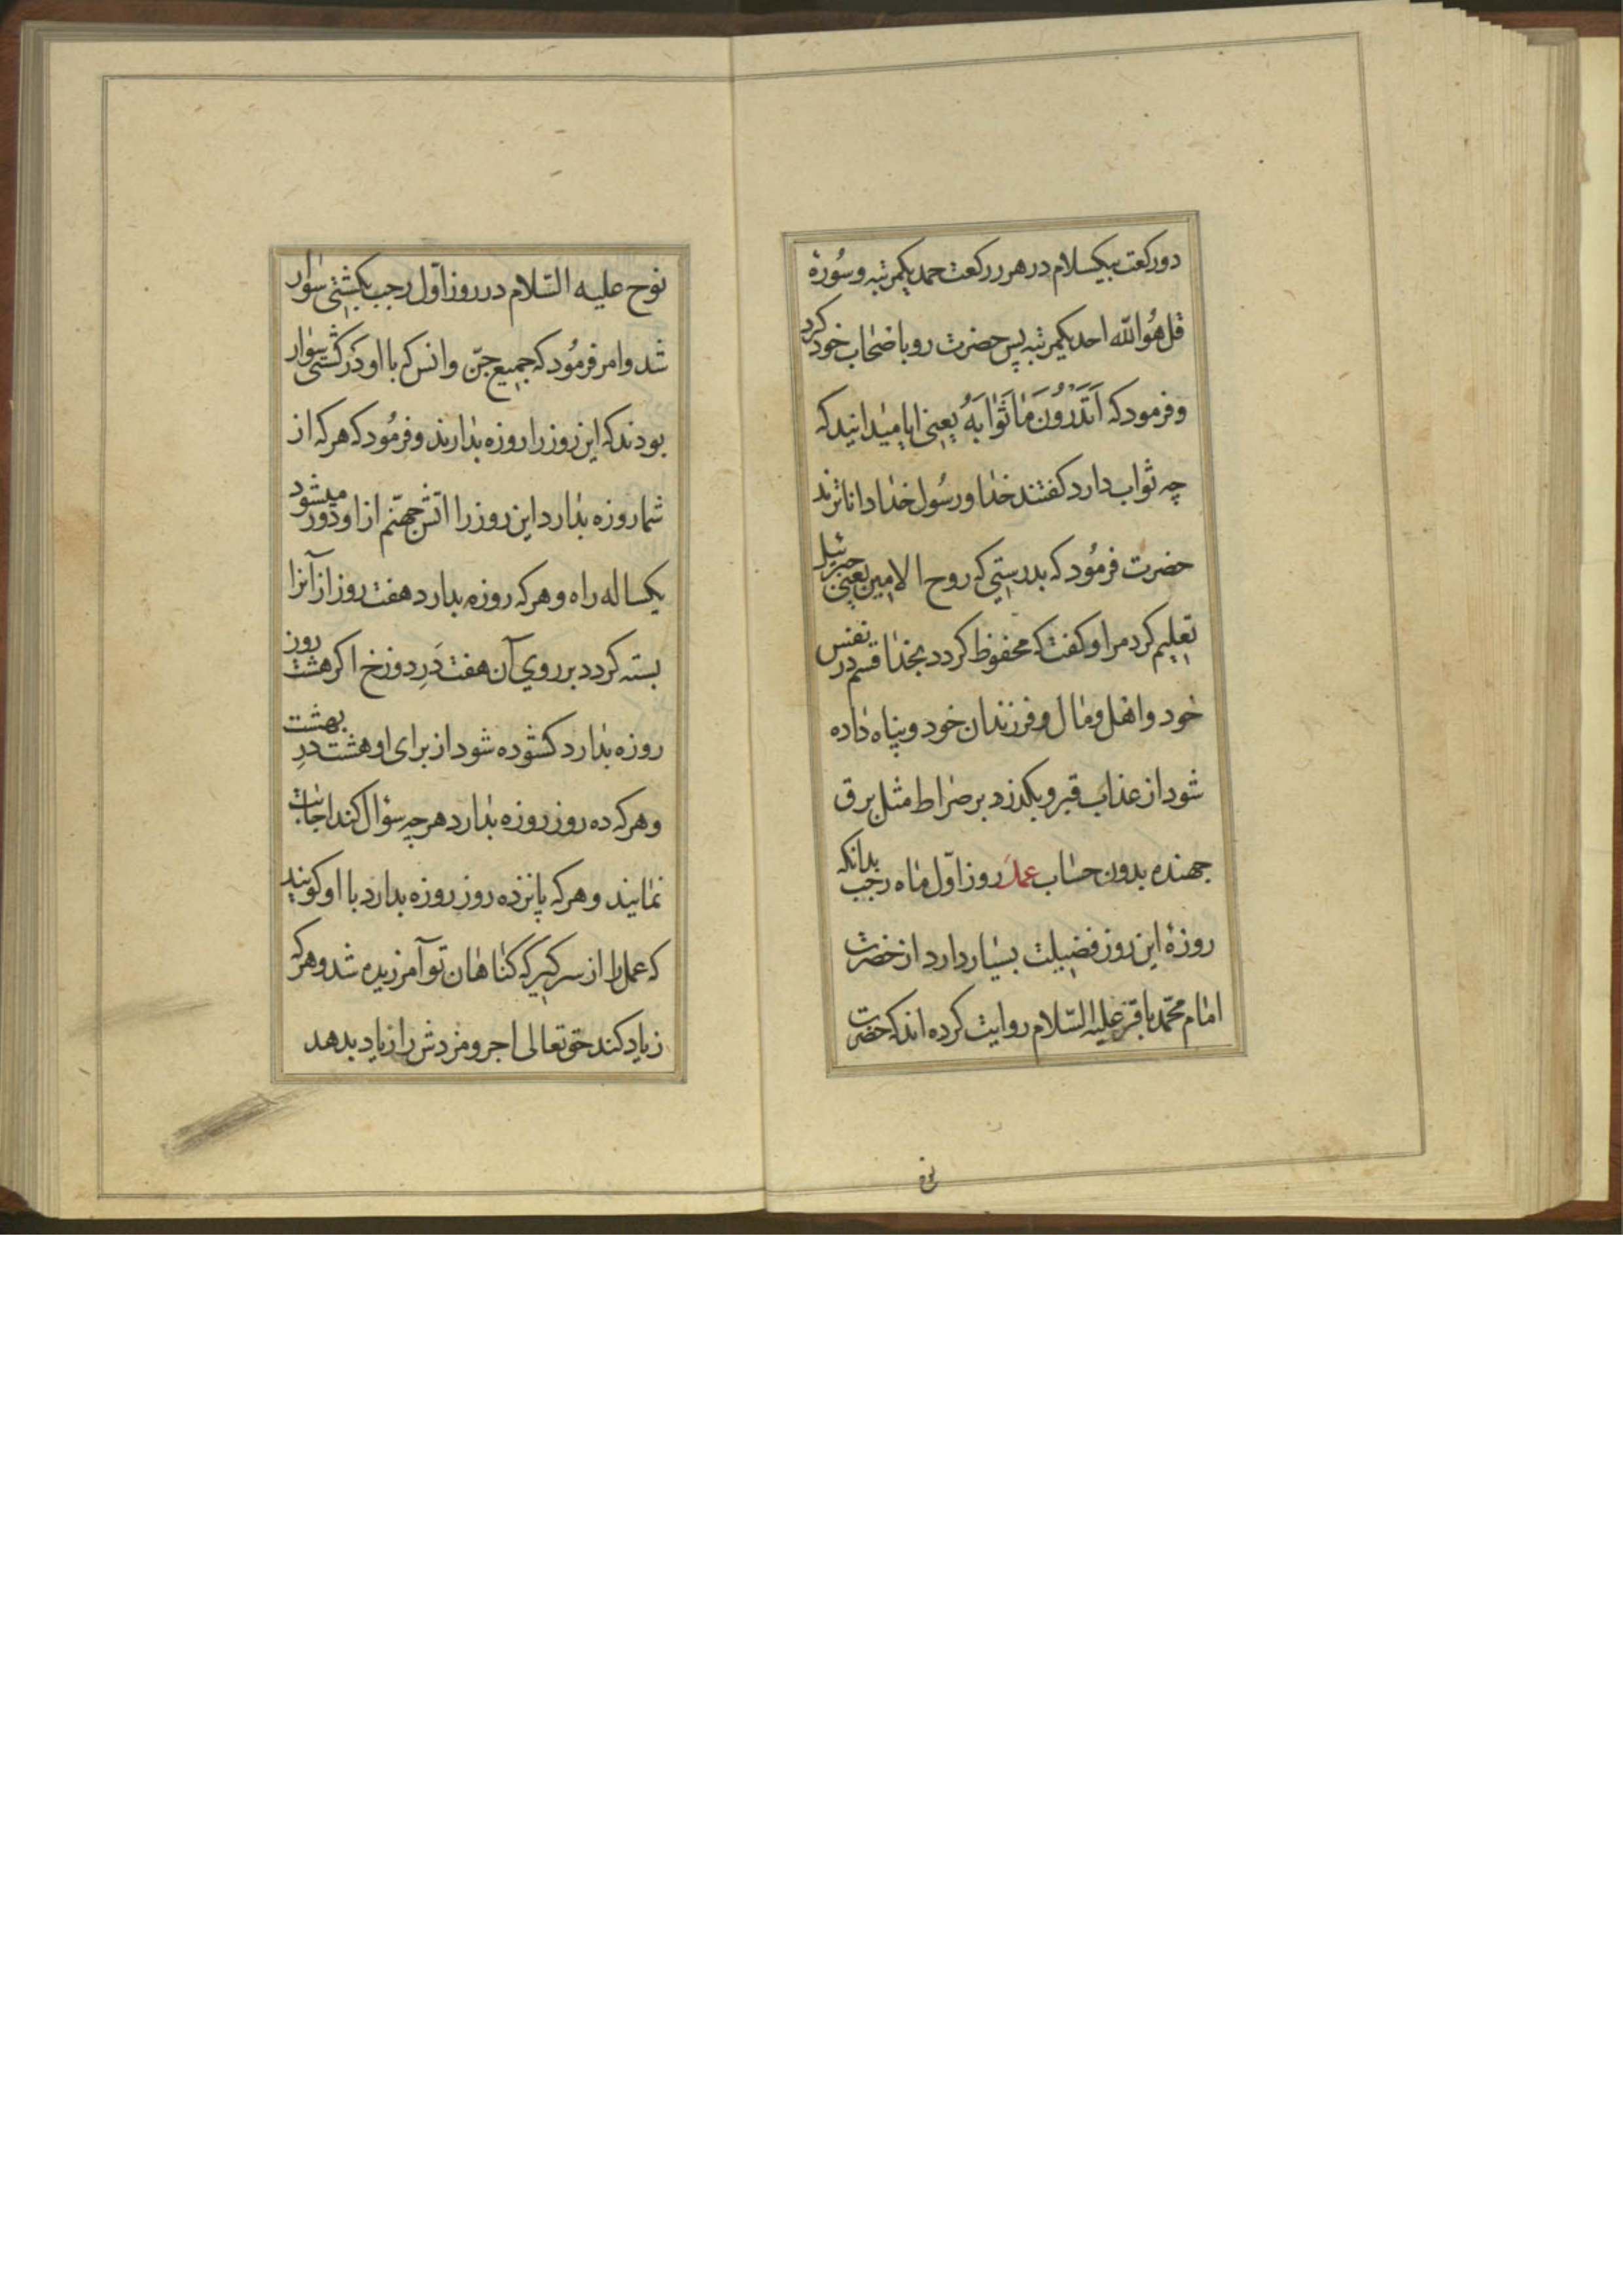 دو رکعت بیکسلام در هر رکعت حمد یکمرتبه و سُورهٔ
قل هُو الله احد یکمرتبه پس حضرت رو باصحاب خود کرد
و فرمود که اَتَدْرُونَ مَا ثَوَابَهُ یعنی ایا میدانید که
چه ثواب دارد کفتند خدا و رسُول خدا داناترند
حضرت فرمُود که بدرستی که روح الامین یعنی جبرئیل
تعلیم کرد مرا و کفت که محفوظ کردد بخدا قسم در نفس
خود و اهل و مال و فرزندان خود و پناه داده
شود از عذاب قبر و بکذرد بر صراط مثل برق
جهنده بدون حساب عمل روز اوّل ماه رجب بدانکه
روزهٔ این روز فضیلت بسیار دارد از حضرت
امام محمّد باقر علیه السّلام روایت کرده اند که حضرت
نوح
نوح علیه السّلام در روز اوّل رجب بکشتی سوار
شد و امر فرمُود که جمیع جنّ و انس که با او در کشتی سوار
بودند که این روز را روزه بدارند و فرمُود که هر که از
شما روزه بدارد این روز را اتش جهنّم از او دور میشود
یکساله راه و هر که روزه بدارد هفت روز از آنرا
بسته کردد بر روی آن هفت دَرِ دوزخ اکر هشت روز
روزه بدارد کشوده شود از برای او هشت درِ بهشت
و هر که ده روز روزه بدارد هر چه سؤال کند اجابت
نمایند و هر که پانزده روز روزه بدارد با او کویند
که عمل را از سر کیر که کناهان تو آمرزیده شد و هر که
زیاد کند حق تعالی اجر و مزدش را زیاد بدهد